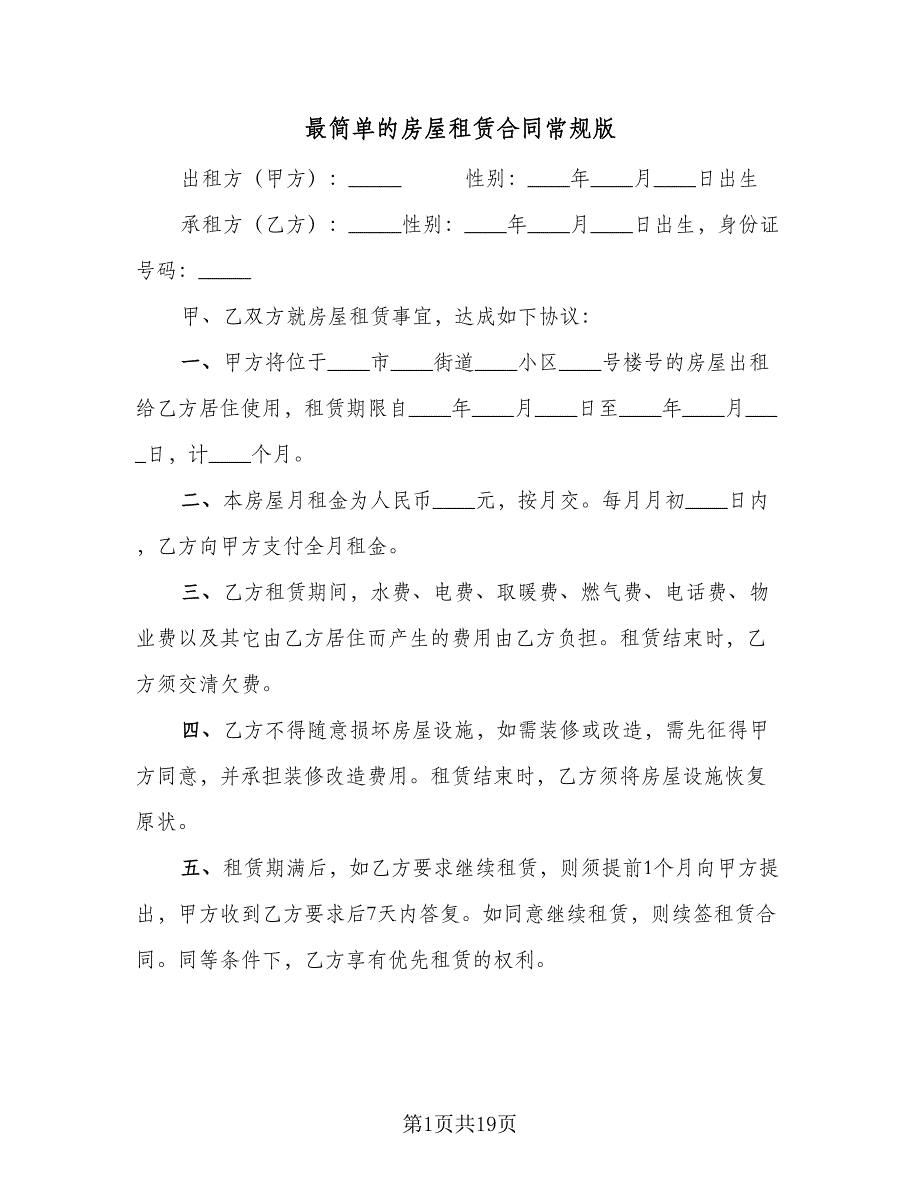 最简单的房屋租赁合同常规版
出租方（甲方）：_____ 性别：____年____月____日出生
承租方（乙方）：_____性别：____年____月____日出生，身份证
号码：_____
甲、乙双方就房屋租赁事宜，达成如下协议：
一、甲方将位于____市____街道____小区____号楼号的房屋出租
给乙方居住使用，租赁期限自____年____月____日至____年____月___
_日，计____个月。
二、本房屋月租金为人民币____元，按月交。每月月初____日内
，乙方向甲方支付全月租金。
三、乙方租赁期间，水费、电费、取暖费、燃气费、电话费、物
业费以及其它由乙方居住而产生的费用由乙方负担。租赁结束时，乙
方须交清欠费。
四、乙方不得随意损坏房屋设施，如需装修或改造，需先征得甲
方同意，并承担装修改造费用。租赁结束时，乙方须将房屋设施恢复
原状。
五、租赁期满后，如乙方要求继续租赁，则须提前1个月向甲方提
出，甲方收到乙方要求后7天内答复。如同意继续租赁，则续签租赁合
同。同等条件下，乙方享有优先租赁的权利。
第1页共19页